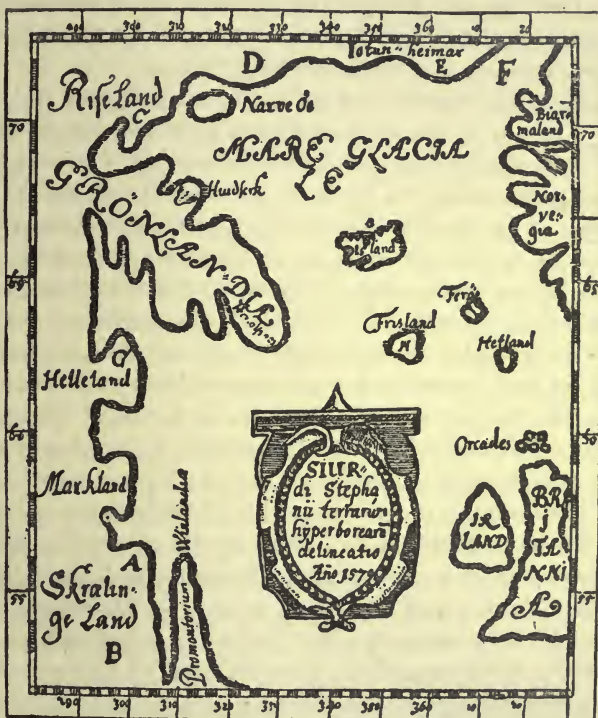 290 300 310 320 340 350 360 10 20
D
Iotun-heimar
E
F
Riseland
C
Narve Oe
Biar
malund
70
70
MARE GLACIA
LE
Huidserk
GRÖNLAN-DIA
Nor
ve-
gia
Island
65
65
Ferö
Frisland
H
Hetland
G
Helleland
60
Orcades
Markland
SIUR-
di Stepha
nii terrarum
hyperborearū
delineatio
Año 1570
IR
LAND
BR
i
TA
NNi
A
A
Promontorium Winlandiæ
55
55
Skralin-
ge Land
B
290 300 310 320 350 360 10 20